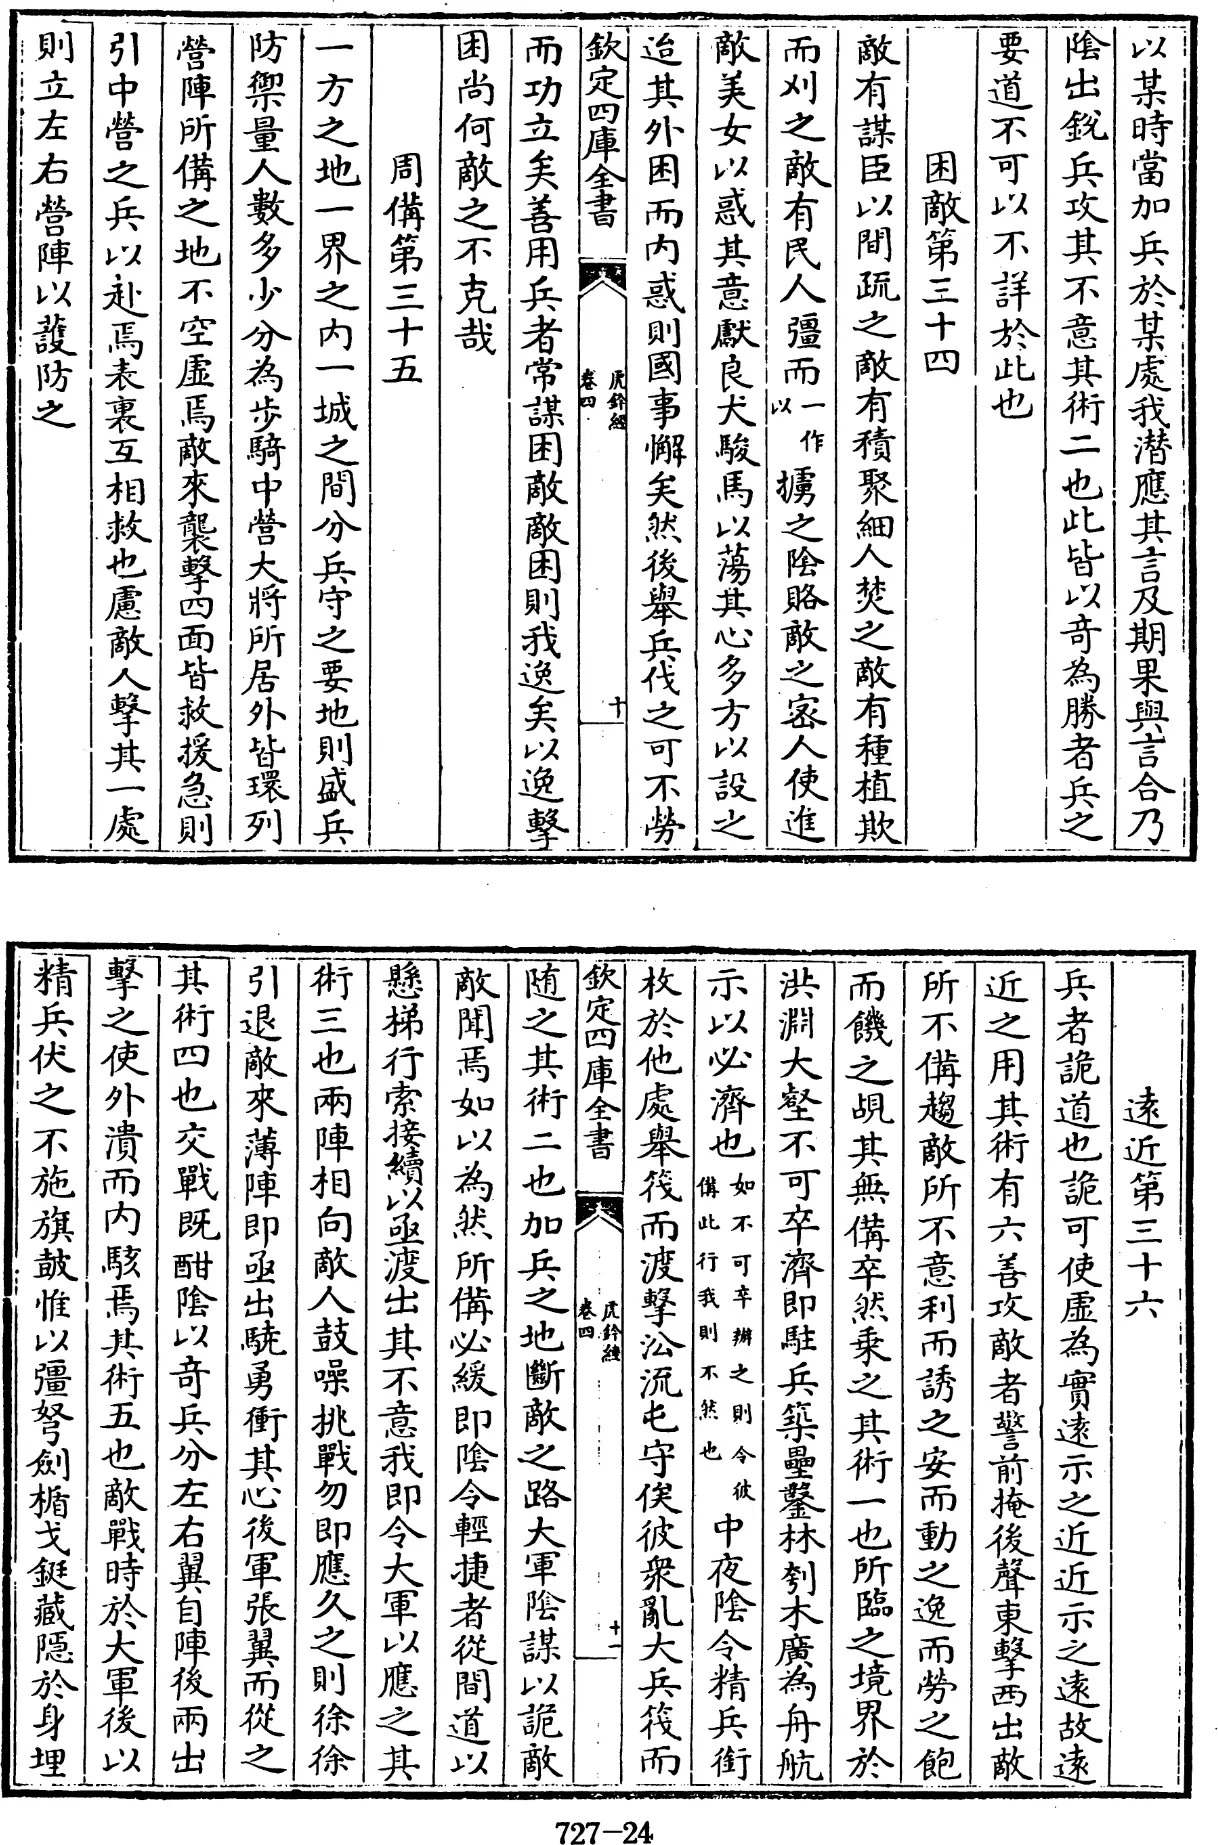 以某時當加兵於某處我潛應其言及期果與言合乃
陰出銳兵攻其不意其術二也此皆以奇為勝者兵之
要道不可以不詳於此也
困敵第三十四
敵有謀臣以間疏之敵有積聚細人焚之敵有種植欺
而刈之敵有民人彊而一作以擄之陰賂敵之密人使進
敵美女以惑其意獻良犬駿馬以蕩其心多方以設之
迨其外困而內惑則國事懈矣然後舉兵伐之可不勞
欽定四庫全書
虎鈐經
卷四
十
而功立矣善用兵者常謀困敵敵困則我逸矣以逸擊
困尚何敵之不克哉
周備第三十五
一方之地一界之內一城之間分兵守之要地則盛兵
防禦量人數多少分為步騎中營大將所居外皆環列
營陣所備之地不空虛焉敵來襲擊四面皆救援急則
引中營之兵以赴焉表裏互相救也慮敵人擊其一處
則立左右營陣以護防之
遠近第三十六
兵者詭道也詭可使虛為實遠示之近近示之遠故遠
近之用其術有六善攻敵者警前掩後聲東擊西出敵
所不備趨敵所不意利而誘之安而動之逸而勞之飽
而饑之覘其無備卒然乗之其術一也所臨之境界於
洪淵大壑不可卒濟即駐兵築壘鑿林刳木廣為舟航
示以必濟也如不可卒辦之則令彼備此行我則不然也中夜陰令精兵銜
枚於他處舉筏而渡擊沿流屯守俟彼衆亂大兵筏而
欽定四庫全書
虎鈐經
卷四
十一
隨之其術二也加兵之地斷敵之路大軍陰謀以詭敵
敵聞焉如以為然所備必緩即陰令輕捷者從間道以
懸梯行索接續以亟渡出其不意我即令大軍以應之其
術三也兩陣相向敵人鼓噪挑戰勿即應久之則徐徐
引退敵來薄陣即亟出驍勇衝其心後軍張翼而從之
其術四也交戰既酣陰以奇兵分左右翼自陣後兩出
擊之使外潰而內駭焉其術五也敵戰時於大軍後以
精兵伏之不施旗鼓惟以彊弩劍楯戈鋋藏隱於身埋
727-24